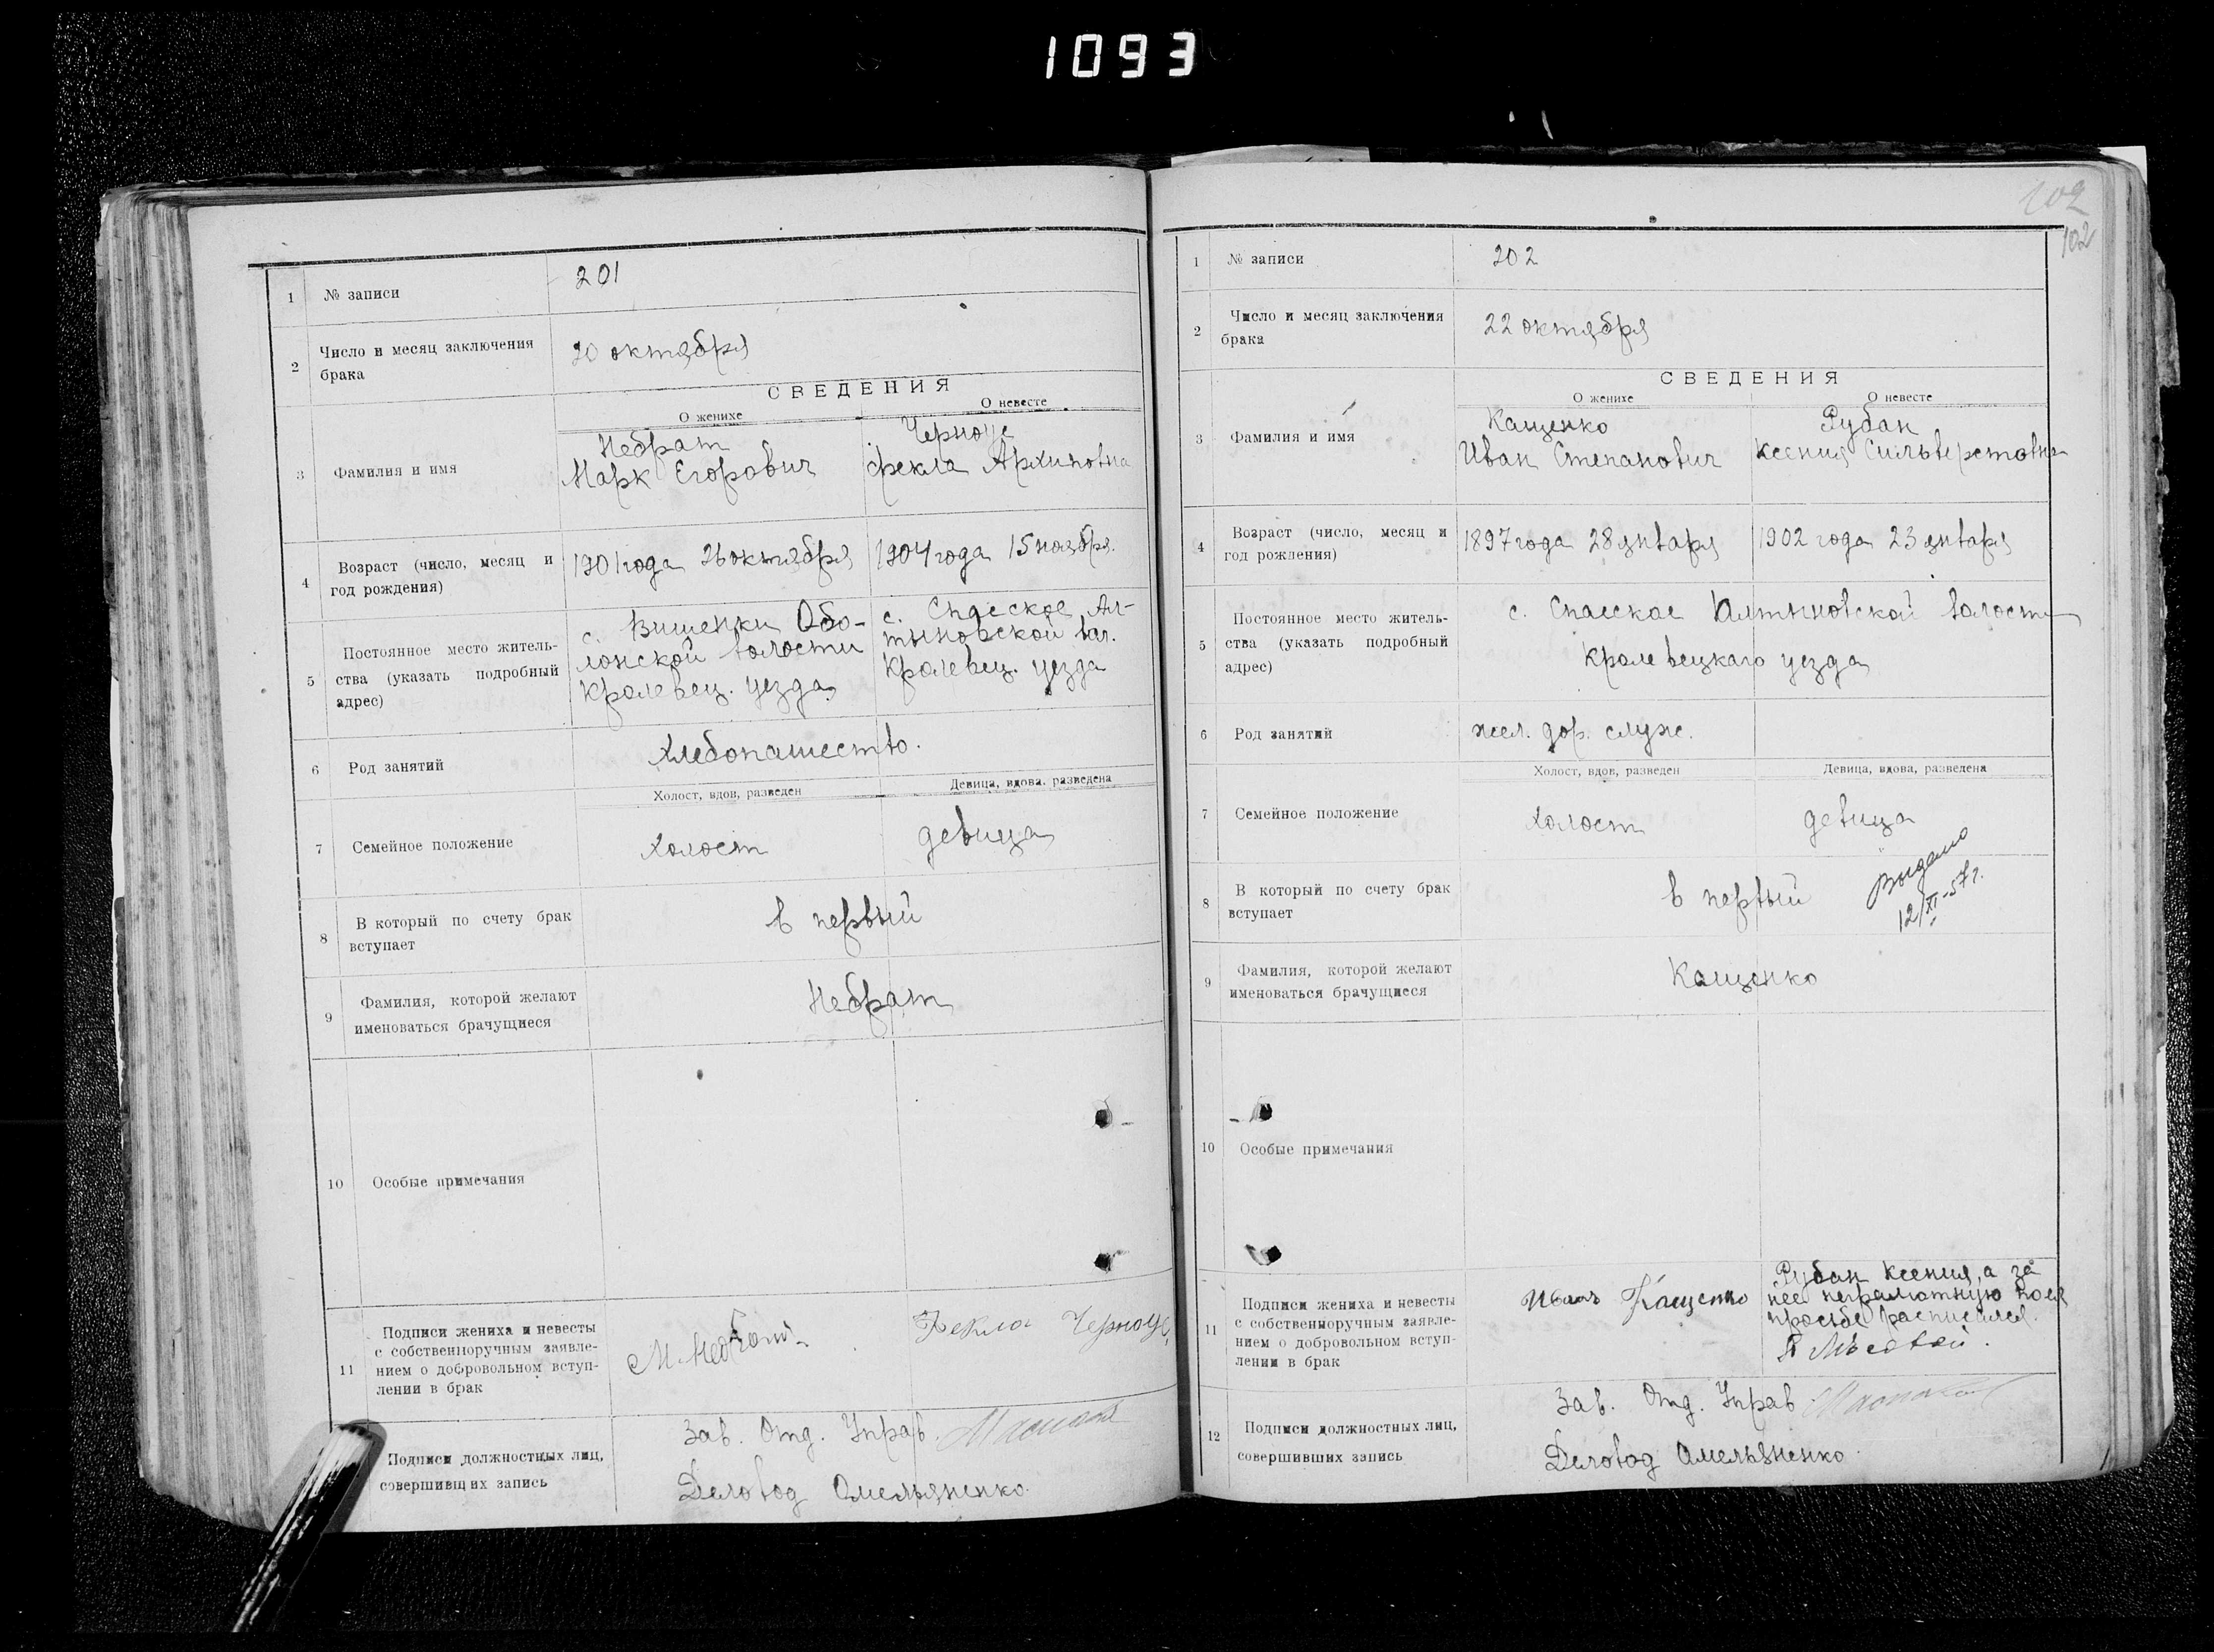 1093
1 № записи 201
2 Число и месяц заключения брака 20 октября
СВЕДЕНИЯ
О женихе О невесте
3 Фамилия и имя
Небрат
Марк Егорович
Черноус
Фекла Архиповна
4 Возраст (число, месяц и год рождения)
1901 года 26 октября
1904 года 15 ноября.
5 Постоянное место житель-
ства (указать подробный
адрес)
с. Вишенки Обо-
лонской волости
Кролевец. уезда
с. Спасское, Ал-
тыновской вол.
Кролевец. уезда
6 Род занятий Хлебопашество.
Холост, вдов, разведен Девица, вдова, разведена
7 Семейное положение холост девица
8 В который по счету брак
вступает
в первый
9 Фамилия, которой желают
именоваться брачущиеся
Небрат
10 Особые примечания
11 Подписи жениха и невесты
с собственноручным заявле-
нием о добровольном вступ-
лении в брак
М. Небрат
Фекла Черноус
Подписи должностных лиц,
совершивших запись
Зав. Отд. Управ.
Деловод Омельяненко.
102
102
1 № записи 202
2 Число и месяц заключения
брака
22 октября
СВЕДЕНИЯ
О женихе О невесте
3 Фамилия и имя
Кащенко
Иван Степанович
Рубан
Ксения Сильверстовна
4 Возраст (число, месяц и
год рождения)
1897 года 28 января
1902 года 23 января
5 Постоянное место житель-
ства (указать подробный
адрес)
с. Спасское Алтыновской волости
Кролевецкаго уезда
6 Род занятий жел. дор. служ.
Холост, вдов, разведен Девица, вдова, разведена
7 Семейное положение холост девица
8 В который по счету брак
вступает
в первый
Выдано
12/XI-57 г.
9 Фамилия, которой желают
именоваться брачущиеся
Кащенко
10 Особые примечания
11 Подписи жениха и невесты
с собственноручным заявле-
нием о добровольном вступ-
лении в брак
Иван Кащенко
Рубан Ксения, а за
нее неграмотную по ея
просьбе расписался
12 Подписи должностных лиц,
совершивших запись
Зав. Отд. Управ
Деловод Омельяненко